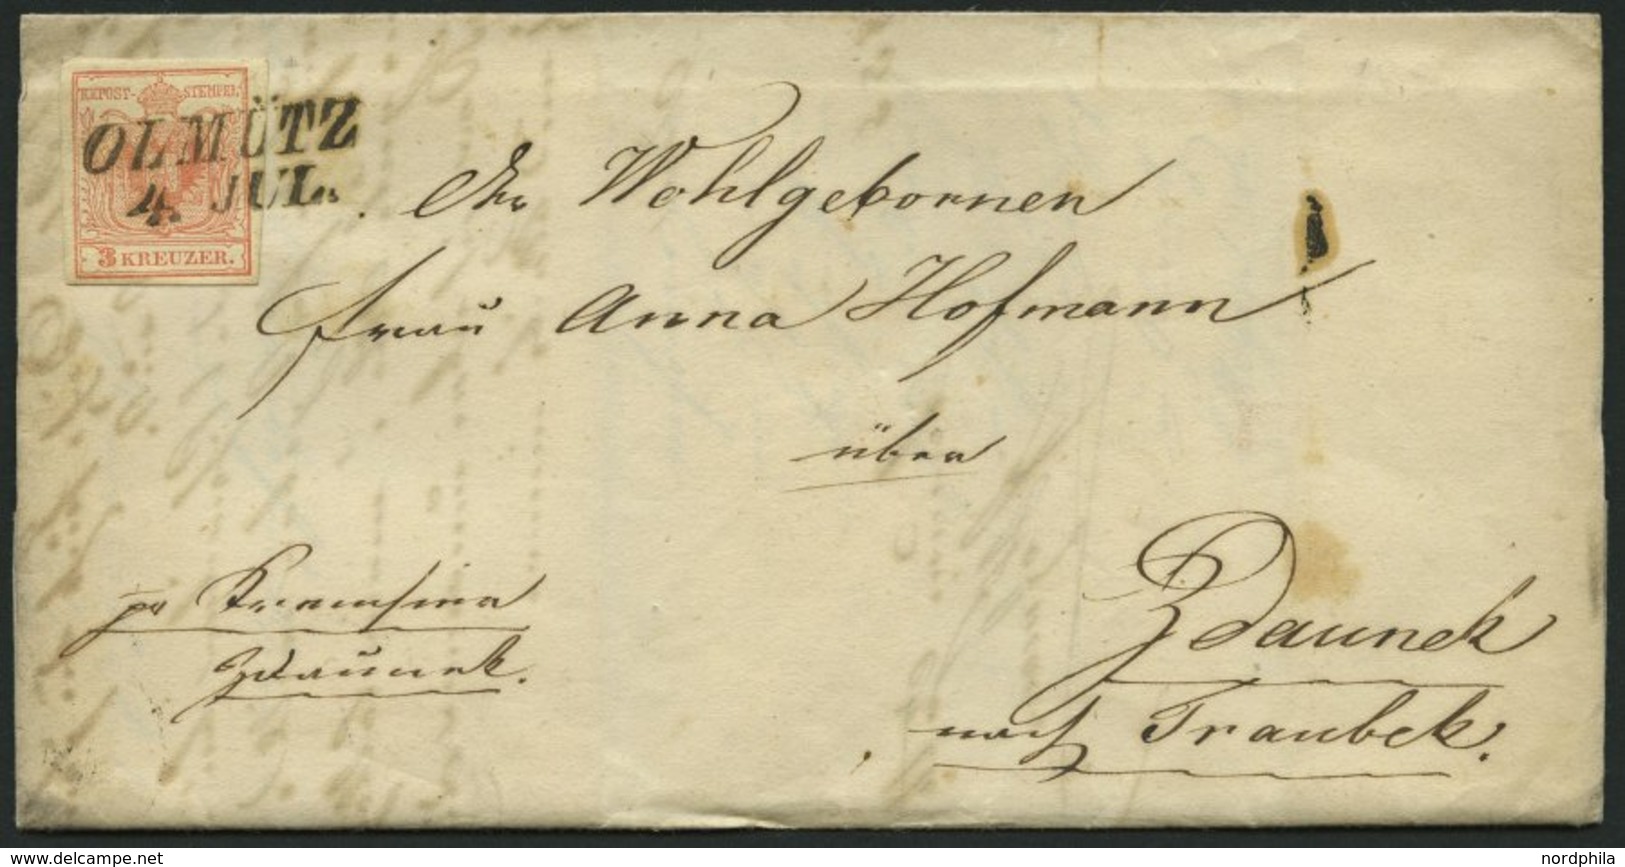 KKPOST-STEMPEL
OLMÜTZ
4. JUL.
3 KREUZER.
Der Wohlgebornen
Frau Anna Hofmann
über
pr Kremsier
Zdaunek.
Zdaunek
nach Traubek.
delcampe.net
nordphila